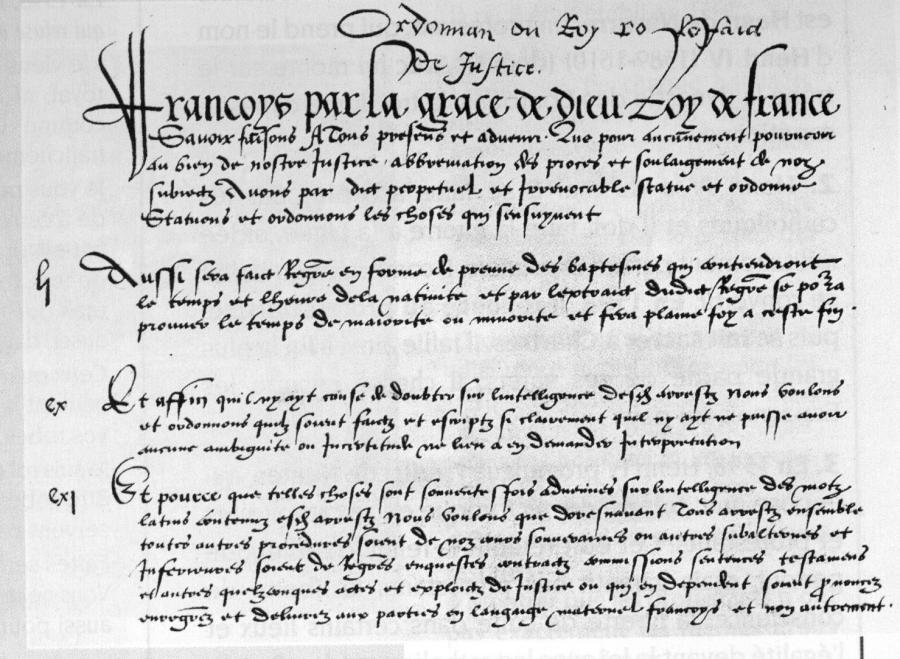 Ordonnan du Roy
De Justice.
francoys par la grace de dieu Roy de france
Savoir faisons A Tous presens et advenir Que pour aucunement pourveoir
au bien de nostre Justice abbreviation des proces et soulaigement de noz
subiectz Avons par dict perpetuel et Irrevocable statue et ordonne
Statuons et ordonnons les choses qui sensuyvent
li Aussi sera faict Regre en forme de preuve des baptesmes qui contiendront
le temps et lheure dela nativite et par lextraict dudict Regre se porra
prouver le temps de maiorite ou minorite et fera plaine foy a ceste fin.
cx Et affin quil ny ayt cause de doubter sur lintelligence desd arrestz Nous voulons
et ordonnons quilz soient faictz et escriptz si clairement quil ny ayt ne puisse avoir
aucune ambiguite ou Incertitude ne lieu a en demander Interpretation
cxi Et pource que telles choses sont souventesfois advenues sur lintelligence des motz
latins contenuz esd arrestz Nous voulons que doresnavant Tous arrestz ensemble
toutes autres procedures soient de noz cours souveraines ou autres subalternes et
Inferieures soient de Regres enquestes contractz commissions sentences testamens
et autres quelzconques actes et exploictz de Justice ou qui en dependent soient pnoncez
enregrez et delivrez aux parties en langage maternel francoys et non autrement.